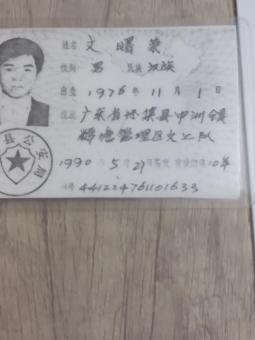 姓名 文曙荣
性别 男 民族 汉族
出生 1976年11月1日
住址 广东省怀集县中洲镇
管理区文二队
1990年5月29日 10年
441224761101633
县公安局